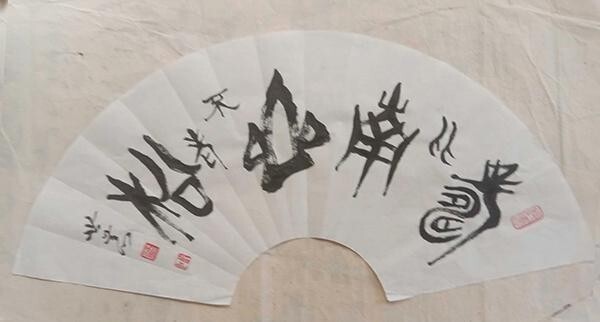 壽比南山不老松